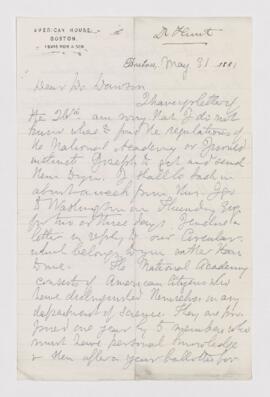 AMERICAN HOUSE,
BOSTON.
LEWIS RICE & SON
Dr Hunt
Boston, May 31 1881
Dear Dr Dawson
I have yr letter of
the 26th. am sorry that I do not
know where to find the regulations of
the National Academy or I would
instruct Joseph to get and send
them to you. I shall be back in
about a week from this. I go
to Washington on Thursday
for two or three days. I enclose a
letter in reply to our Circular,
which belongs to you rather than
to me. The National Academy
consists of American Citizens who
have distinguished themselves in any
department of science. They are pro
posed one year by 5 members who
must have personal knowledge
& then after a year balloted for